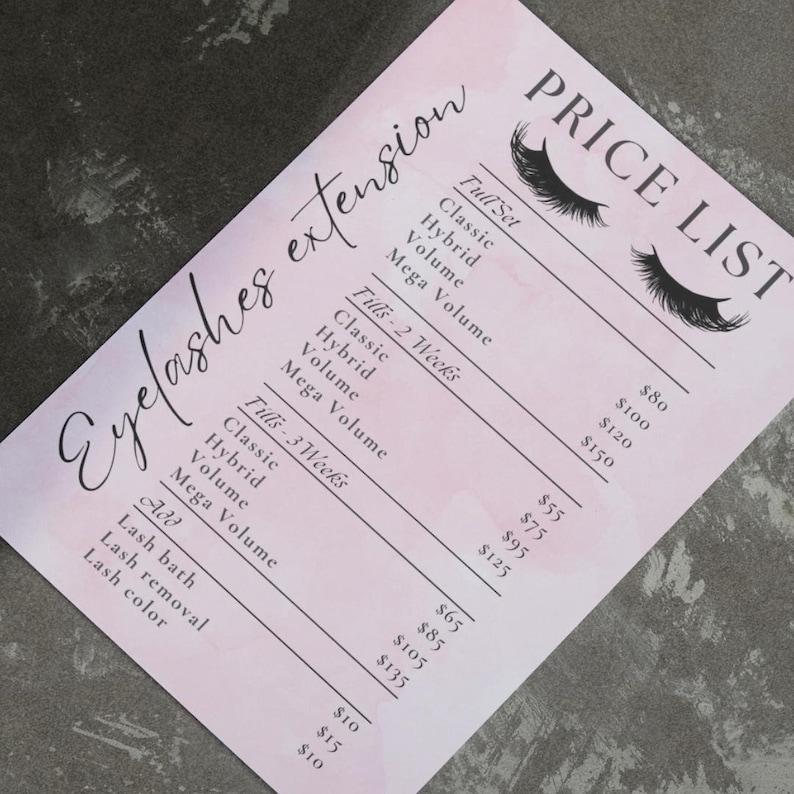 PRICE LIST
Eyelashes extension
Full Set
Classic $80
Hybrid $100
Volume $120
Mega Volume $150
Fills - 2 Weeks
Classic $55
Hybrid $75
Volume $95
Mega Volume $125
Fills - 3 Weeks
Classic $65
Hybrid $85
Volume $105
Mega Volume $135
Add
Lash bath $10
Lash removal $15
Lash color $10